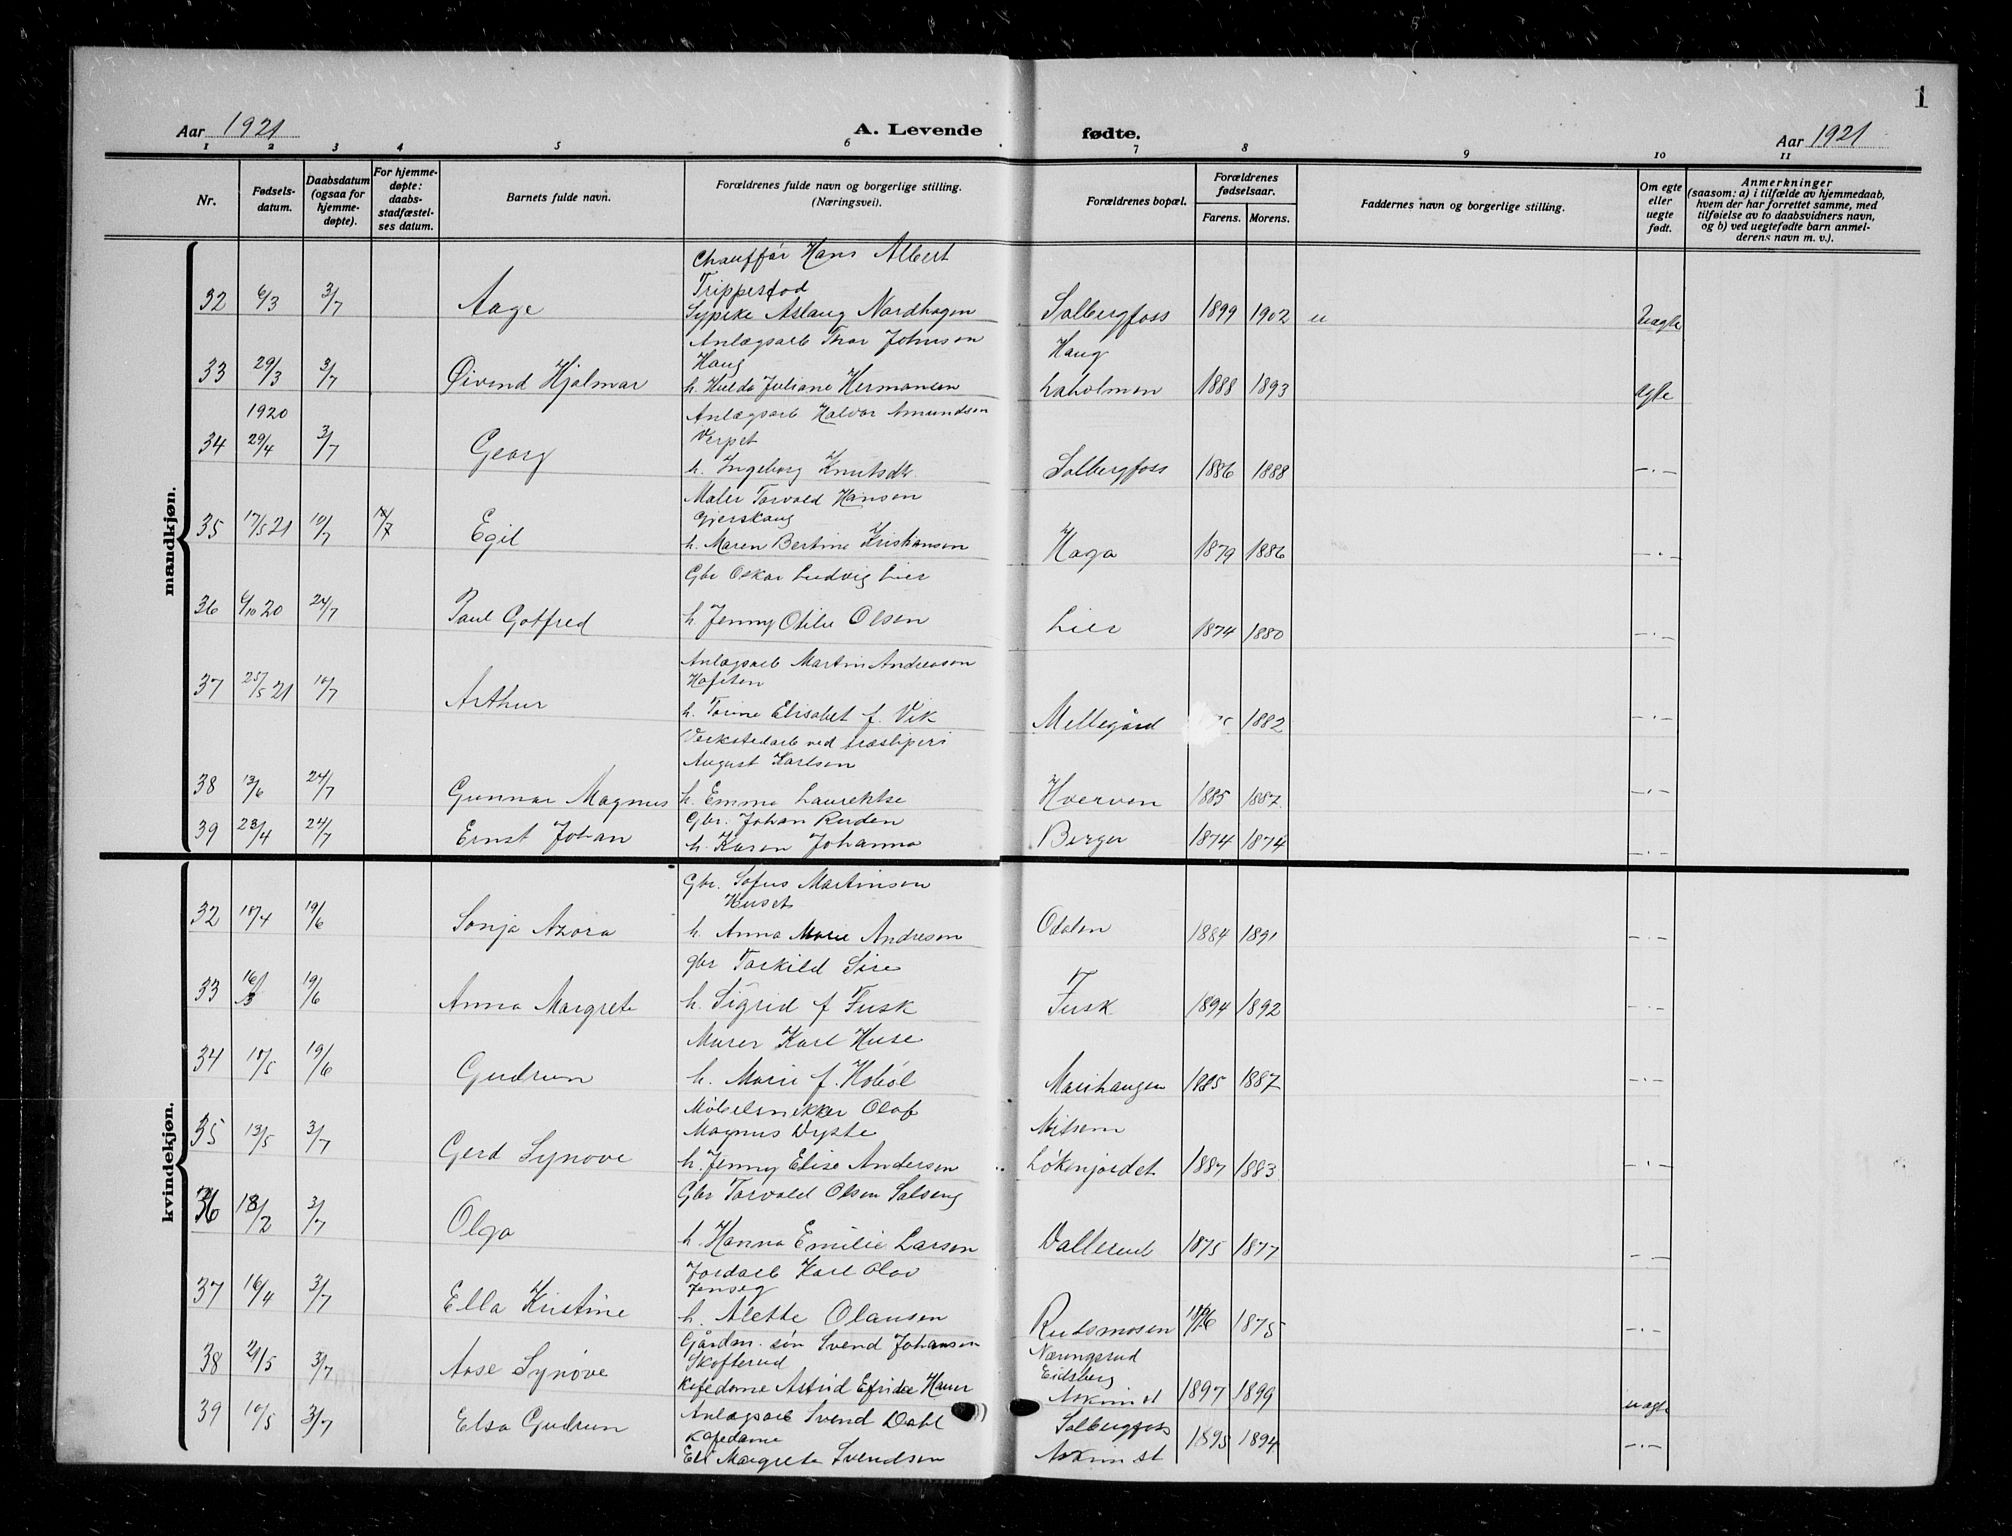 1
Aar 1921
A. Levende fødte.
Aar 1921
1 2 3 4 5 6 7 8 9 10 11
Nr.
Fødsels-
datum.
Daabsdatum
(ogsaa for
hjemme-
døpte).
For hjemme-
døpte:
daabs-
stadfæstel-
ses datum.
Barnets fulde navn.
Forældrenes fulde navn og borgerlige stilling.
(Næringsvei).
Forældrenes bopæl.
Forældrenes
fødselsaar.
Farens. Morens.
Faddernes navn og borgerlige stilling.
Om egte
eller
uegte
født.
Anmerkninger
(saasom: a) i tilfælde av hjemmedaab,
hvem der har forrettet samme, med
tilføielse av to daabsvidners navn,
og b) ved uegtefødte barn anmel-
derens navn m. v.).
mandkjøn.
Chauffør Hans Albert
Trippestod
32 6/3 3/7 Aage Sypike Aslaug Nordhagen Solbergfoss 1899 1902 u Uægte
Anlægsarb Thor Johnson Haug
Haug
33 29/3 3/7 Øivind Hjalmar h. Hulda Juliane Hermansen Laholmen 1888 1893 ægte
1920 Anlægsarb Halvor Amundsen
Verpet
34 29/4 3/7 Georg h. Ingeborg Knutsdtr. Solbergfoss 1886 1888 -.-
Maler Torvald Hansen
Gjerskaug
35 17/5 21 10/7 10/7 Egil h. Maren Bertine Kristiansen Haga 1879 1886 -.-
Gbr Oskar Ludvig Lier
36 6/10 20 24/7 Paul Gotfred h Jenny Otilie Olsen Lier 1874 1880 -.-
Anlægsarb Martin Andreasen
37 25/5 21 10/7 Arthur h. Torine Elisabet f. Vik Mellegård 1882 -.-
Verkstedarb ved træsliperi
August Karlsen
38 13/6 24/7 Gunnar Magnus h. Emma Laurentse Hverven 1885 1887 -.-
Gbr. Johan Ruden
39 23/4 24/7 Ernst Johan h. Karen Johanna Berger 1874 1874 -.-
kvindekjøn.
Gbr. Sofus Martinsen
Huset
32 18/4 19/6 Sonja Azora h. Anna Marie Andresen Odalen 1884 1891 -.-
gbr Torkild Sire
33 16/3 19/6 Anna Margrete h. Sigrid f Fusk Fusk 1894 1892 -.-
Murer Karl Huse
34 18/5 19/6 Gudrun h. Marie f. Hobøl Marihaugen 1885 1887 -.-
Møbelsnikker Olaf
Magnus Dyste Mitsem
35 13/5 3/7 Gerd Synøve h. Jenny Elise Andersen Løkenjordet 1887 1883 -.-
Gbr Torvald Olsen Solseng
36 18/2 3/7 Olga h. Hanna Emilie Larsen Vallerud 1875 1877 -.-
Jordarb Karl Olav
Jenseg
37 16/4 3/7 Ella Kristine h. Alette Olausen Rudsmosen 1876 1875 -.-
Gårdm. søn Svend Johansen Næringsrud
Skofterud Eidsberg
38 21/5 3/7 Aase Synøve Kafedame Astrid Efrida Haner Askim st 1897 1899 uægte
Anlægsarb Svend Dahl Solbergfoss
Kafedame
39 10/5 3/7 Elsa Gudrun Eli Margrete Svendsen Askim st 1895 1894 -.-